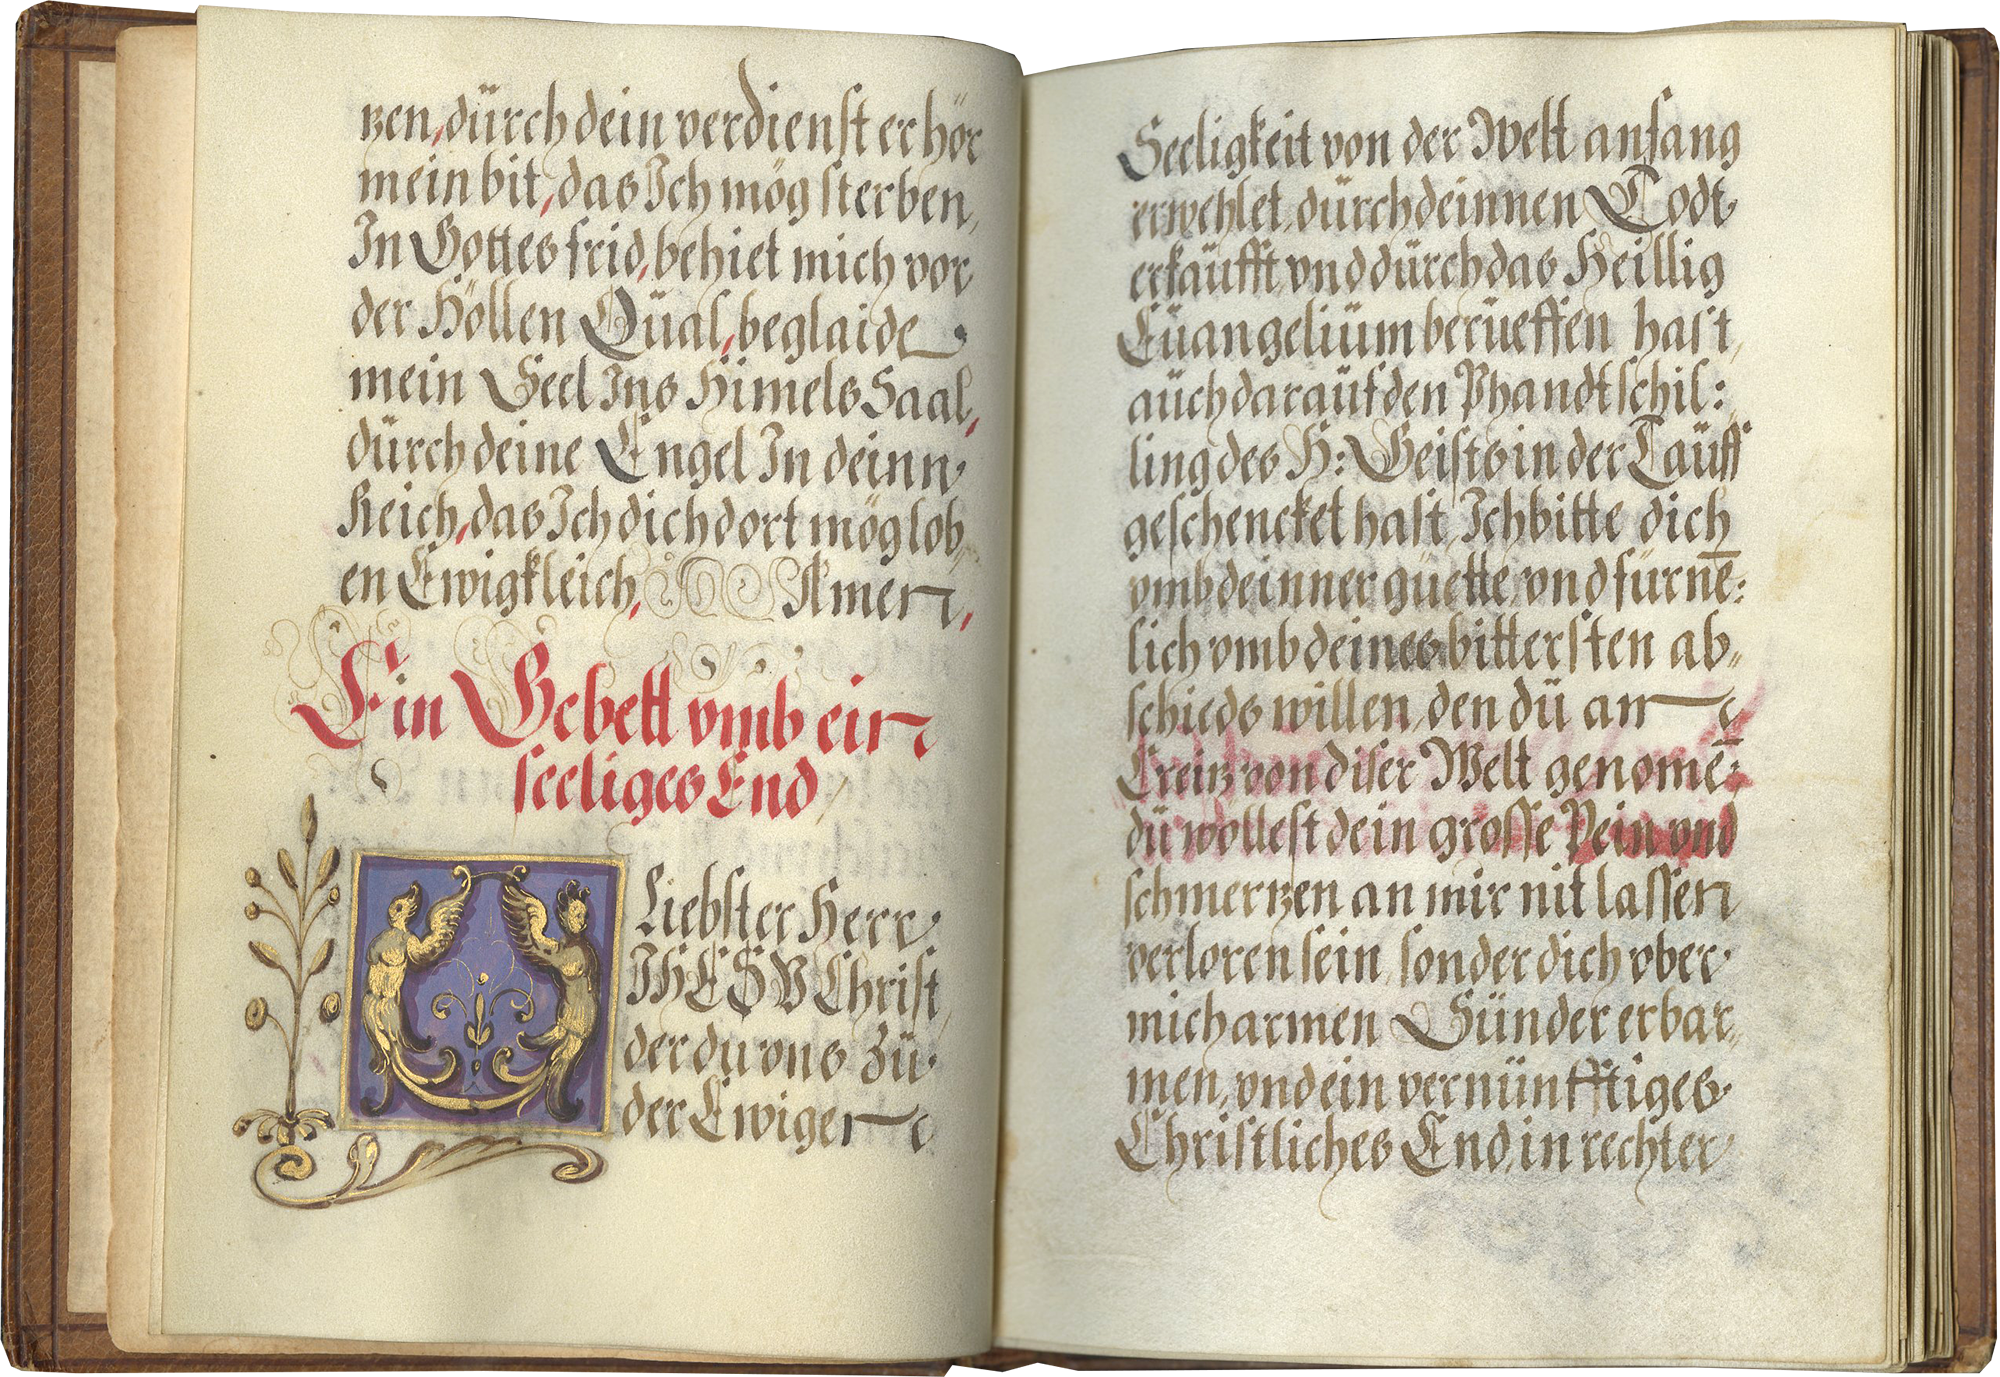 tzen, dürch dein verdienst erhör
mein bit, das Ich mög sterben,
In Gottes frid, behiet mich vor
der Höllen Qüal, beglaide
mein Seel Ins Himels Saal,
dürch deine Engel In deinn
Reich, das Ich dich dort mög lob,,
en Ewigkleich, Amen,
Ein Gebett vmb ein
seeliges End
O Liebster Herr
JHESV Christ,
der du vns zu
der Ewigen
Seeligkeit von der Welt anfang
erwehlet, dürch deinnen Todt
erkäufft, vnd dürch das Heillig
Eüangeliüm berüeffen hast,
aüch daraüf den Phandtschil:
ling des H: Geists in der Taüff
geschencket hast, Ich bitte dich
vmb deinner güette, vnd fürnē:
lich vmb deines bittersten ab,,
schieds willen, den dü an
Creitz von diser Welt genomē:
dü wöllest dein grosse Pein vnd
schmertzen an mir nit lassen
verloren sein, sonder dich vber
mich armen Sünder erbar,,
men, vnd ein vernünfftiges
Christliches End, in rechter